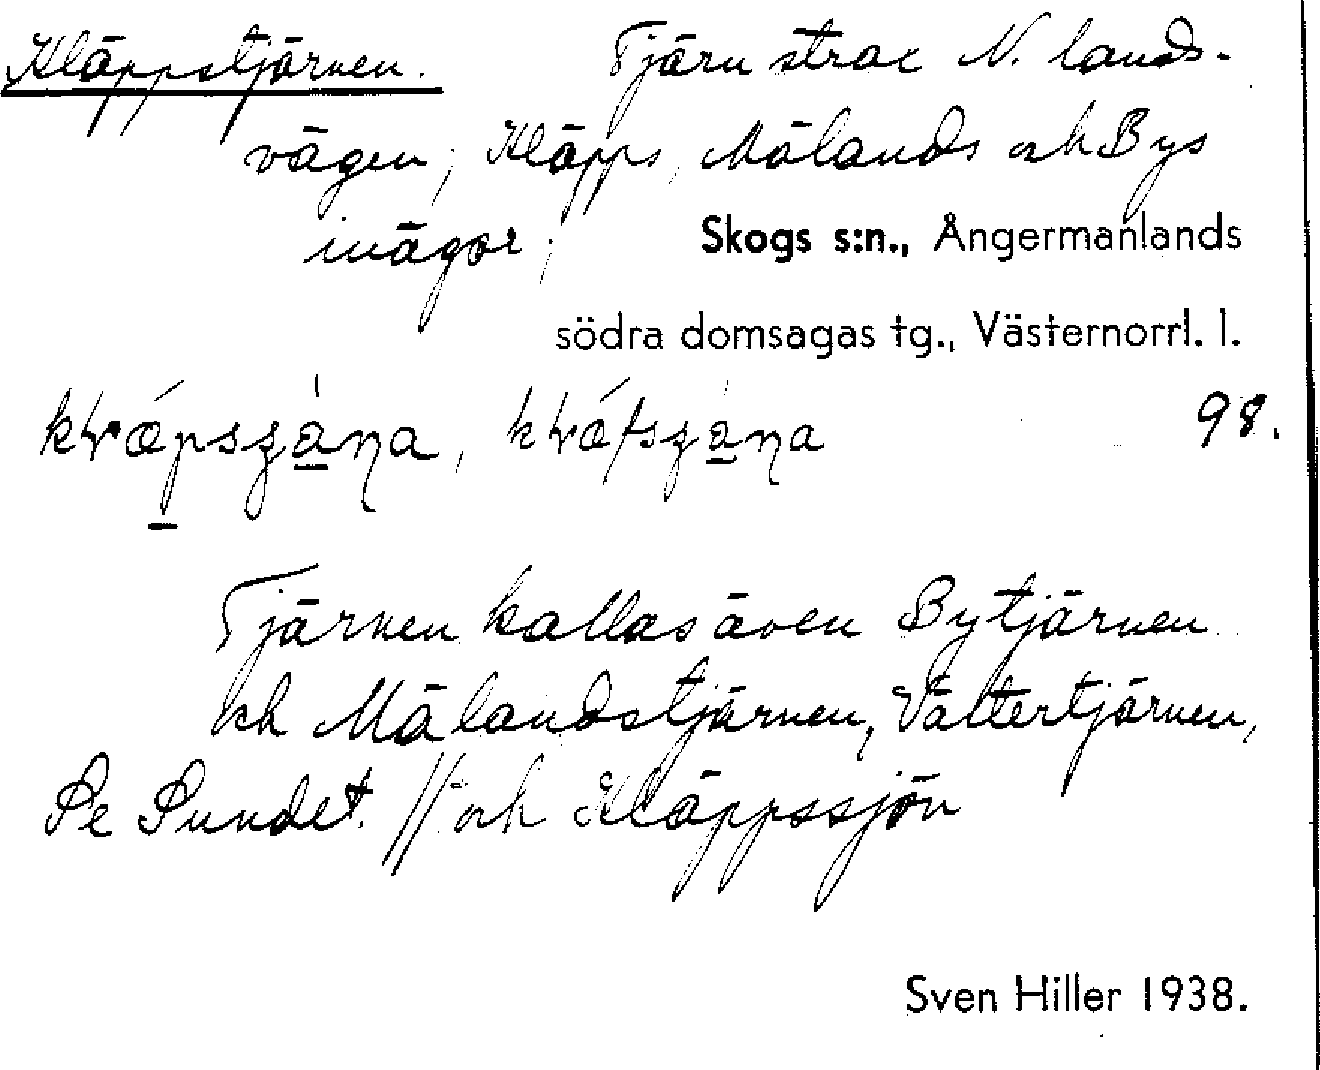 Kläppstjärnen. Tjärn strax N. lands-
vägen; Kläpps, Mälands och Bys
inägor;
Skogs s:n., Ångermanlands
södra domsagas tg., Västernorrl. l.
98.
Tjärnen kallas även Bytjärnen
och Mälandstjärnen, Valtertjärnen,
Se Sundet. // och Kläppssjön
Sven Hiller 1938.